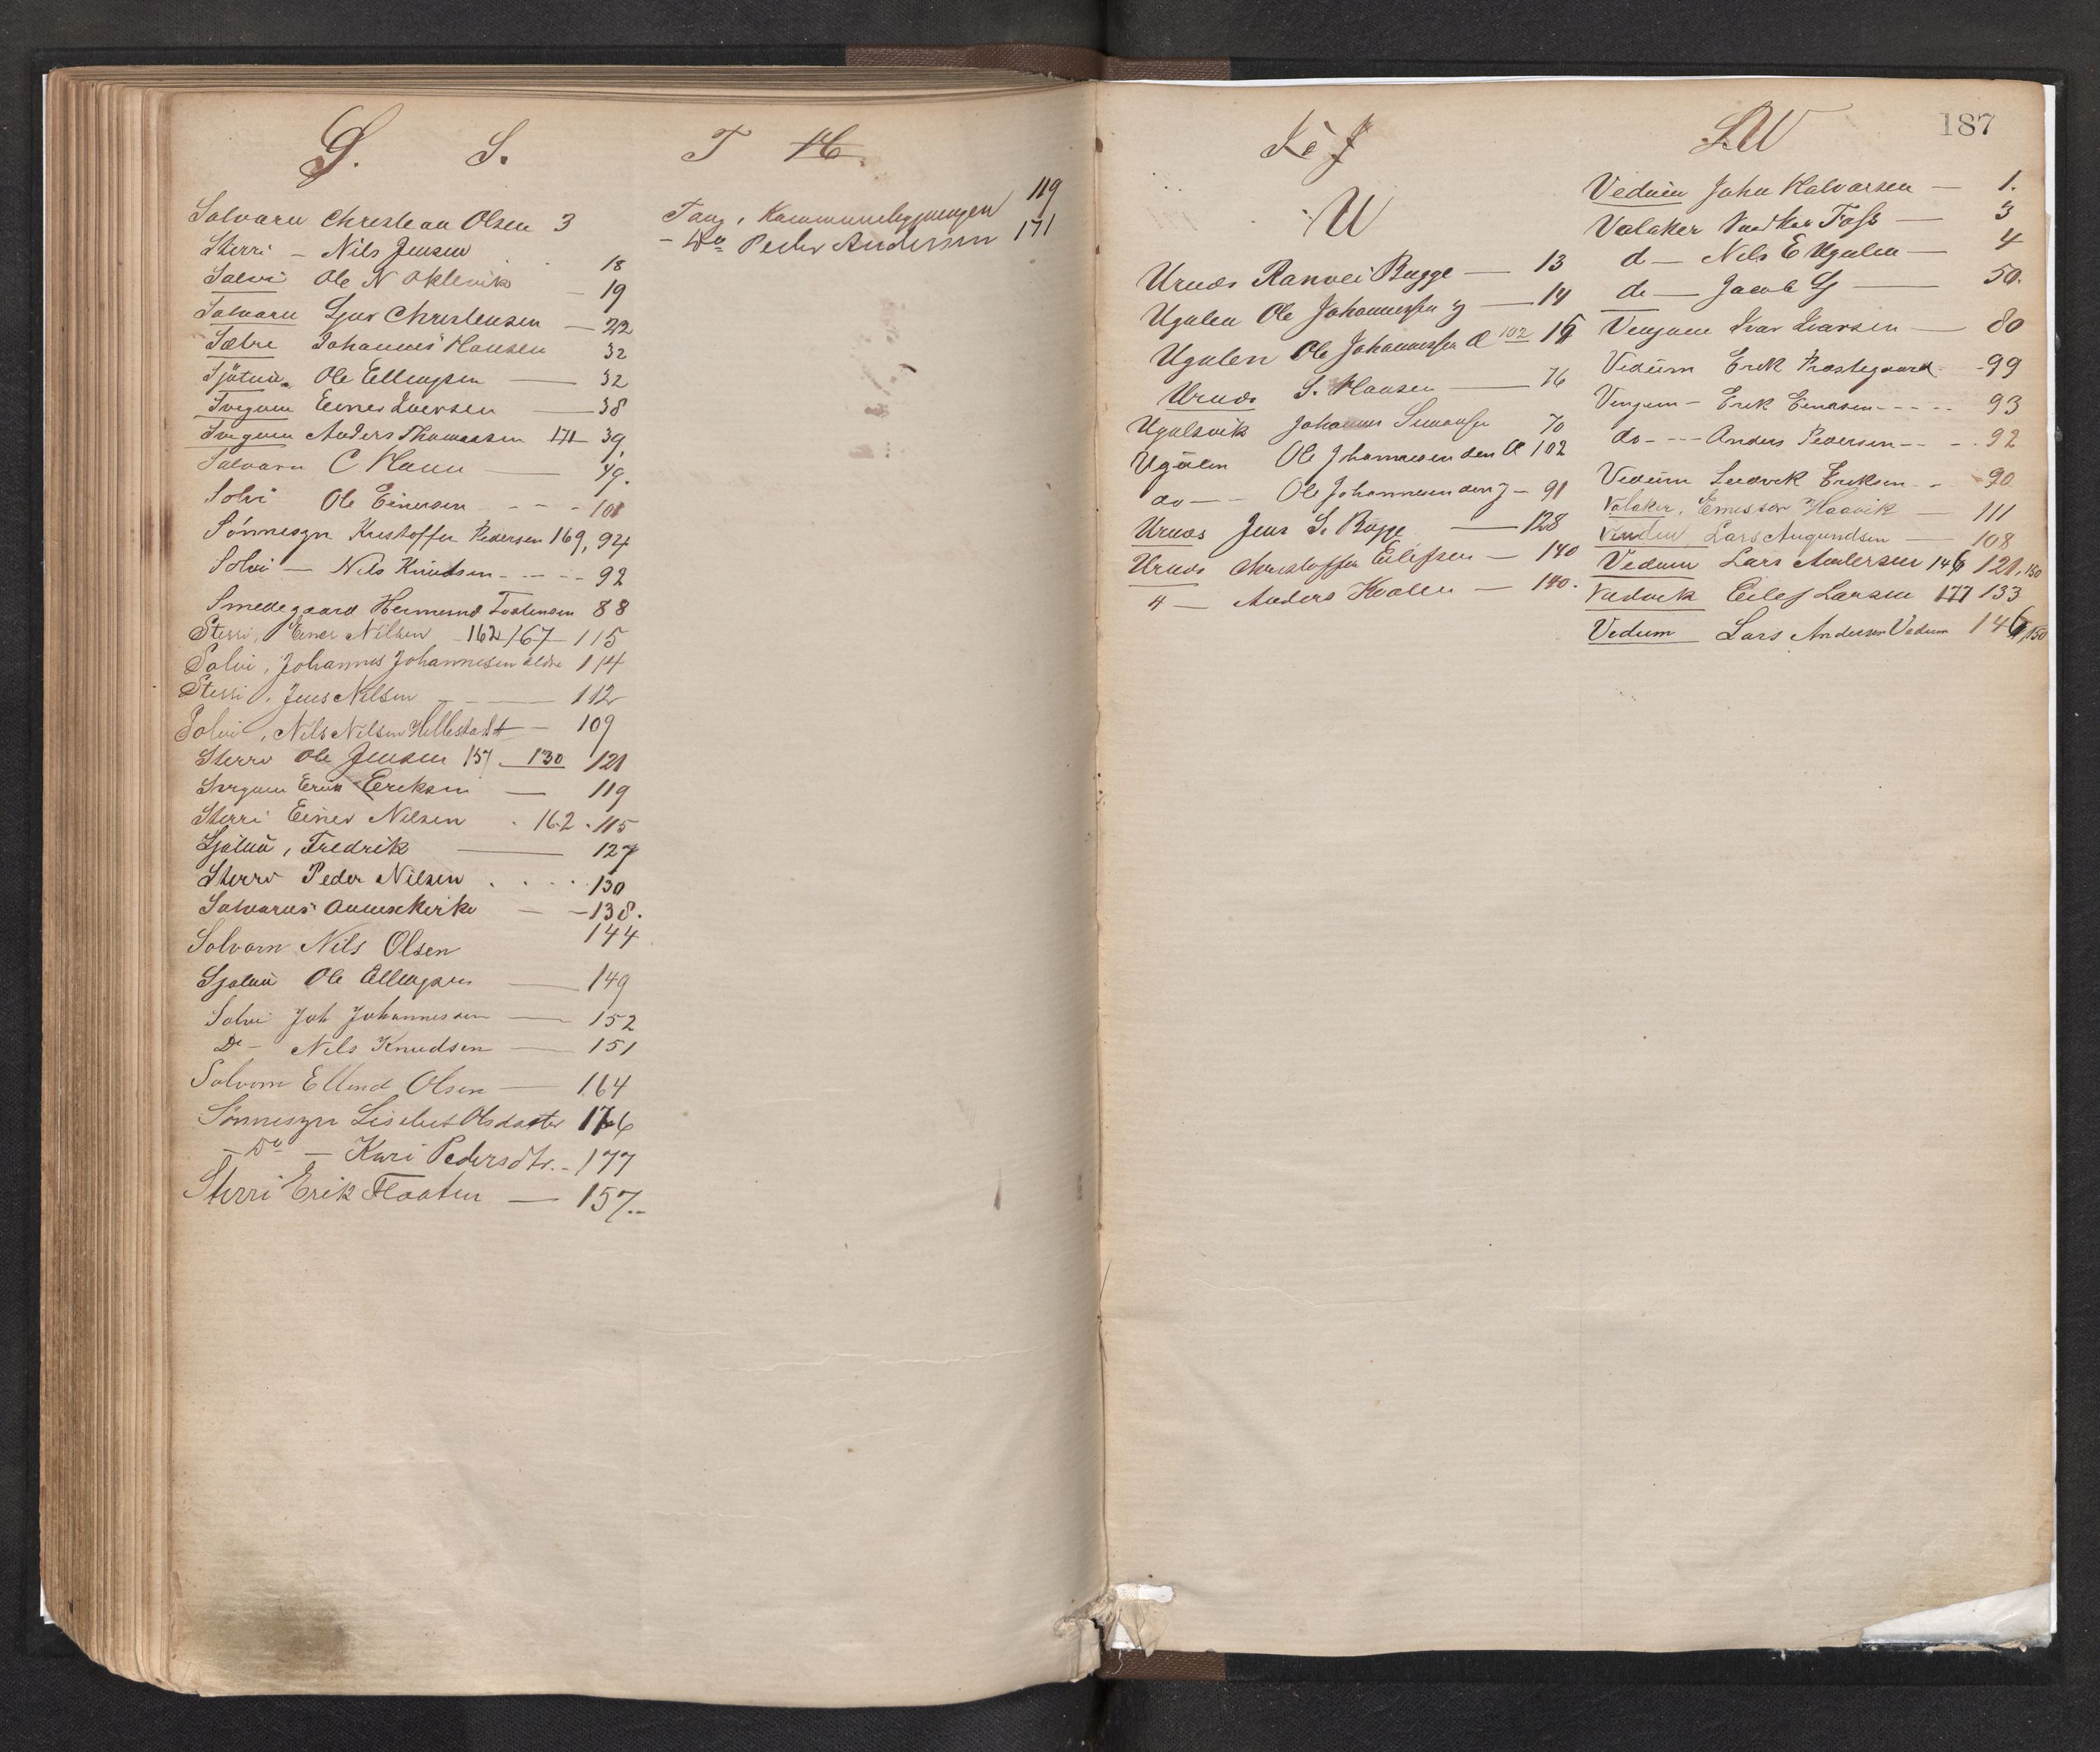 S. S.
Solvorn Christean Olsen 3
Sterri - Nils Jensen 18
Solvi Ole N Oklevik - 19
Solvorn Sjur Christensen - 22
Sæbre Johannes Hansen 32
Sjøtun Ole Ellingsen - 32
Svegum Einer Iversen - 38
Svegum Anders Thomassen 171 39
Solvorn C. Hann - 49.
Solvi Ole Einersen - - - 101
Sønnesyn Kristoffer Pedersen 169, 94
Solvi - Nils Knudsen - - - - 92
Smedegaard Hermund Tostensen 88
Sterri, Einer Nilsen 162 167 115
Solvi, Johannes Johannesen ældre 114
Sterri, Jens Nilsen - 112
Solvi, Nils Nilsen Hillestad - 109
Sterri Ole Jensen 157 130 121
Svegum Erik Eriksen - 119
Sterri Einer Nilsen . 162 . 115
Sjøtun, Fredrik - 127
Sterri Peder Nilsen . . . . 130
Solvorns Annexkirke - - 138.
Solvorn Nils Olsen 144
Sjøtun Ole Ellingsen - 149
Solvi Joh Johannessen - 152
Do - Nils Knudsen - 151
Solvorn Ellend Olsen - 164
Sønnesyn Lisebet Olsdatter 176
- Do - Kari Pedersdtr. - 177
Sterri Erik Flaaten - 157..
T H.
Tang, Kommunebygningen 119
- Do Peder Andersen 171
J
U
Urnæs Ranvei Bugge - 13
Ugulen Ole Johannessen y - 14
Ugulen Ole Johannessen Æ 102 15
Urnæs S. Hansen - 76
Ugulsvik Johannes Simonsen 70
Ugulen Ole Johannesen den Æ 102
do - - Ole Johannesen den y - 91
Urnæs Jens S. Bugge - 128
Urnæs Christoffer Eilefsen - 140
" - Anders Kvalen - 140.
W
187
Vedum John Halvarsen - 1.
Valaker Foss - 3
d - Nils E Ugulen - 4
do - Jacob - 50.
Vengum Ivar Ivarsen - 80
Vedum Erik Præstegaard - 99
Vengum - Erik Einersen - - - - - 93
do - - - Anders Pedersen - - - . 92
Vedum Ludvik Eriksen - - 90
Valaker, Enersen Haavik - 111
Lars Augundsen - 108
Vedum Lars Andersen 146 121, 150
Vedvik Eilef Larsen 177 133
Vedum Lars Andersen Vedum 146, 150